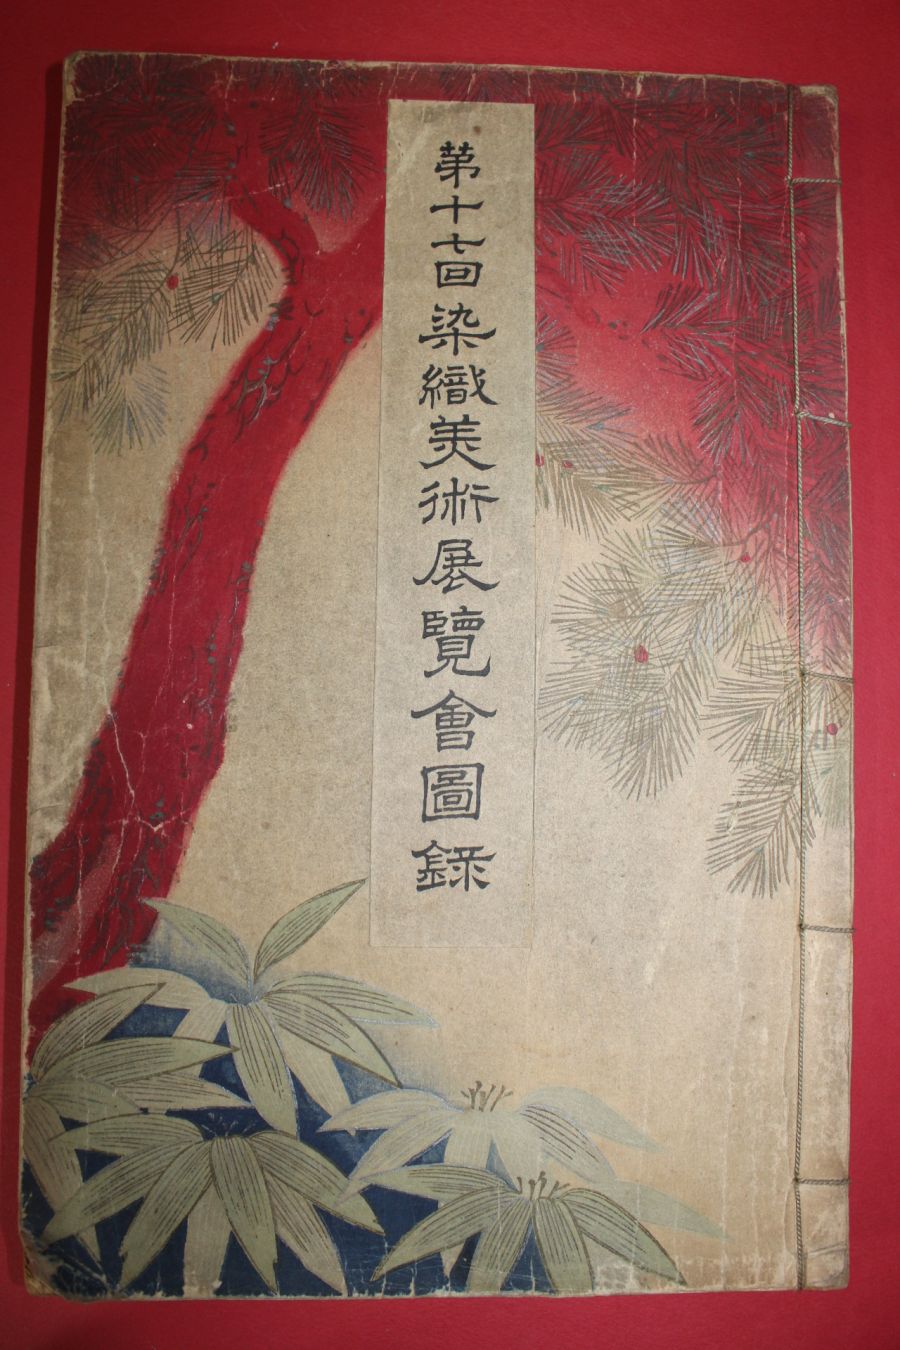 第十七回染織美術展覽會圖錄